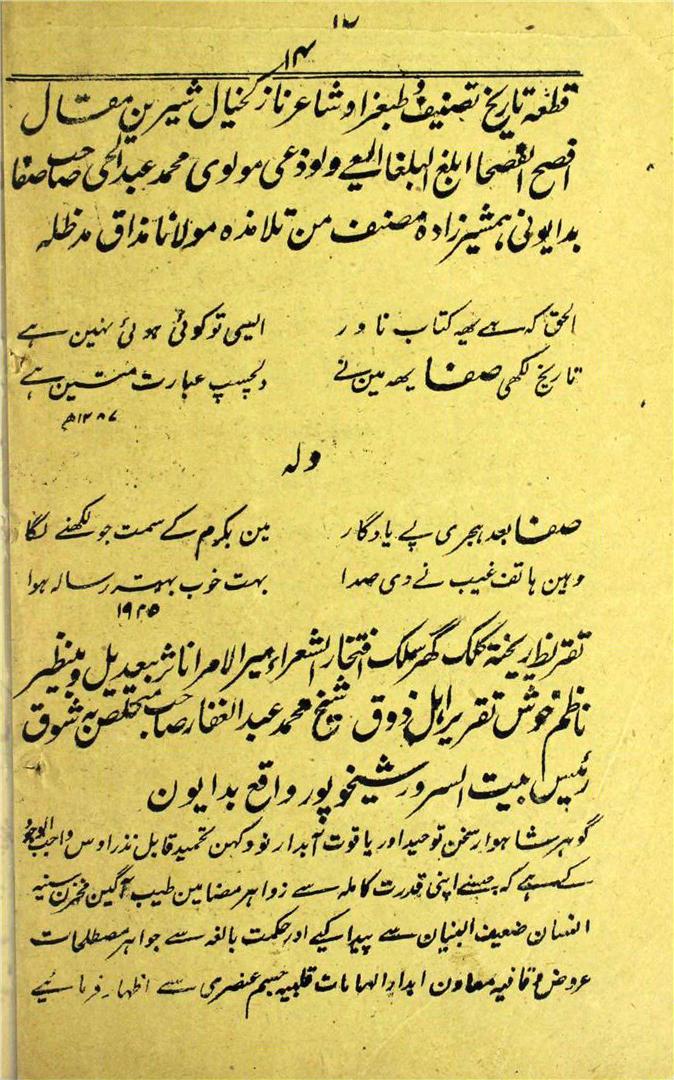 ۱۴
قطعہ تاریخ تصنیف و طبعزاد شاعر نازکخیال شیرین مقال
افصح الفصحا ابلغ البلغا المعے ولوذعی مولوی محمد عبد الحی صاحب صفا
بدایونی ہمشیرزادہ مصنف من تلامذہ مولانا مذاق مدظلہ
الحق کہ ہے یہہ کتاب نادر ایسی تو کوئی ہوئی نہین ہے
تاریخ لکھی صفا یہہ مین نے دلچسپ عبارت متین ہے
۱۲۸۷ھ
ولہ
صفا بعد ہجری پے یادگار مین بکرم کے سمت جو لکھنے لگا
وہین ہاتف غیب نے دی صدا بہت خوب بہتر رسالہ ہوا
۱۹۲۵
تقریظ ریختۂ کلک گہر سلک افتخار الشعراء میر الامرا ناثر بیعدیل و بینظیر
ناظم خوش تقریر اہل ذوق شیخ محمد عبد الغفار صاحب متخلص بہ شوق
رئیس بیت السرور شیخوپور واقع بدایون
گوہر شاہوار سخن توحید اور یاقوت آبدار نو و کہن تحمید قابل نذر اوس واجب الوجود
کے ہے کہ جسنے اپنی قدرت کاملہ سے زواہر مضامین طیب آگین مخزن سینہ
انسان ضعیف البنیان سے پیدا کیے اور حکمت بالغہ سے جواہر مصطلحات
عروض و قافیہ معاون ابدار الہامات قلبیہ جسم عنصری سے اظہار فرمائے